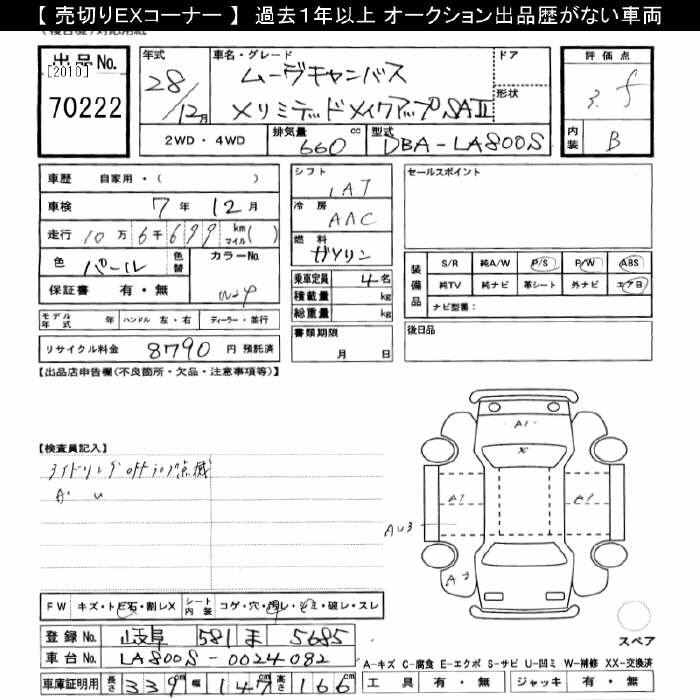 【 売切りEXコーナー 】 過去１年以上 オークション出品歴がない車両
出品 No.
[2010]
70222
年式
28/12月
車名・グレード
ムーヴキャンバス
メリミテッド メイクアップSAⅡ
ドア
形状
評価点
3. f
内装
B
2WD・4WD
排気量
660
cc
型式
DBA-LA800S
車歴 自家用・( )
車検 7年 12月
走行 10万6千699 km マイル( )
色 パール
色替
カラーNo.
W24
保証書 有・無
モデル年式 年 ハンドル 左・右 ディーラー・並行
リサイクル料金 8790 円 預託済
シフト
IAT
冷房
AAC
燃料
ガソリン
乗車定員 4名
積載量 kg
総重量 kg
書類期限
月 日
セールスポイント
装備品
S/R 純A/W P/S P/W ABS
純TV 純ナビ 革シート 外ナビ エアB
ナビ型番：
後日品
【出品店申告欄(不良箇所・欠品・注意事項等)】
【検査員記入】
アイドリングOFFランプ点滅
A. U
A1
X
A1
A1
AU3
A2
スペア
FW キズ・トビ石・割レX
シート内装 コゲ・穴・汚レ・シミ・破レ・スレ
登録 No. 岐阜 581 ま 5685
車台 No. LA800S-0024082
車庫証明用 長さ 339 cm 幅 147 cm 高さ 166 cm
A-キズ C-腐食 E-エクボ S-サビ U-凹ミ W-補修 XX-交換済
工具 有・無 ジャッキ 有・無